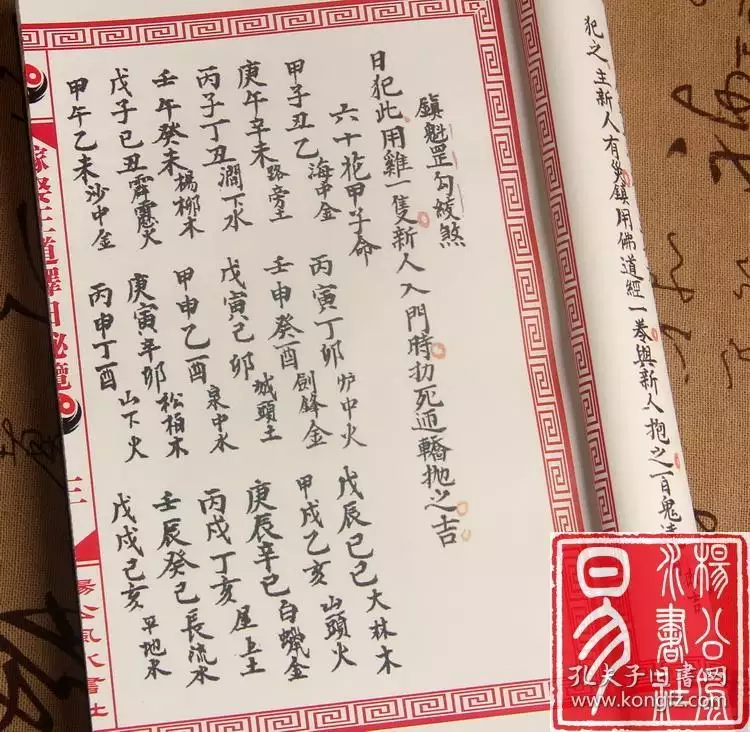 犯之主新人有災鎮用佛道經一卷與新人抱之百鬼
鎮魁罡勾絞煞
日犯此用雞一隻新人入門時扨死迊轎拋之吉
六十花甲子命
甲子丑乙海中金 丙寅丁卯炉中火 戊辰巳己大林木
庚午辛未路旁土 壬申癸酉劍鋒金 甲戌乙亥山頭火
丙子丁丑澗下水 戊寅己卯城頭土 庚辰辛巳白蠟金
壬午癸未楊柳木 甲申乙酉泉中水 丙戌丁亥屋上土
戊子己丑霹靂火 庚寅辛卯松柏木 壬辰癸巳長流水
甲午乙未沙中金 丙申丁酉山下火 戊戌己亥平地木
嫁娶王道擇日秘覽
三
楊公風水書社
楊公風
水書社
易
孔夫子旧书网
www.kongfz.com